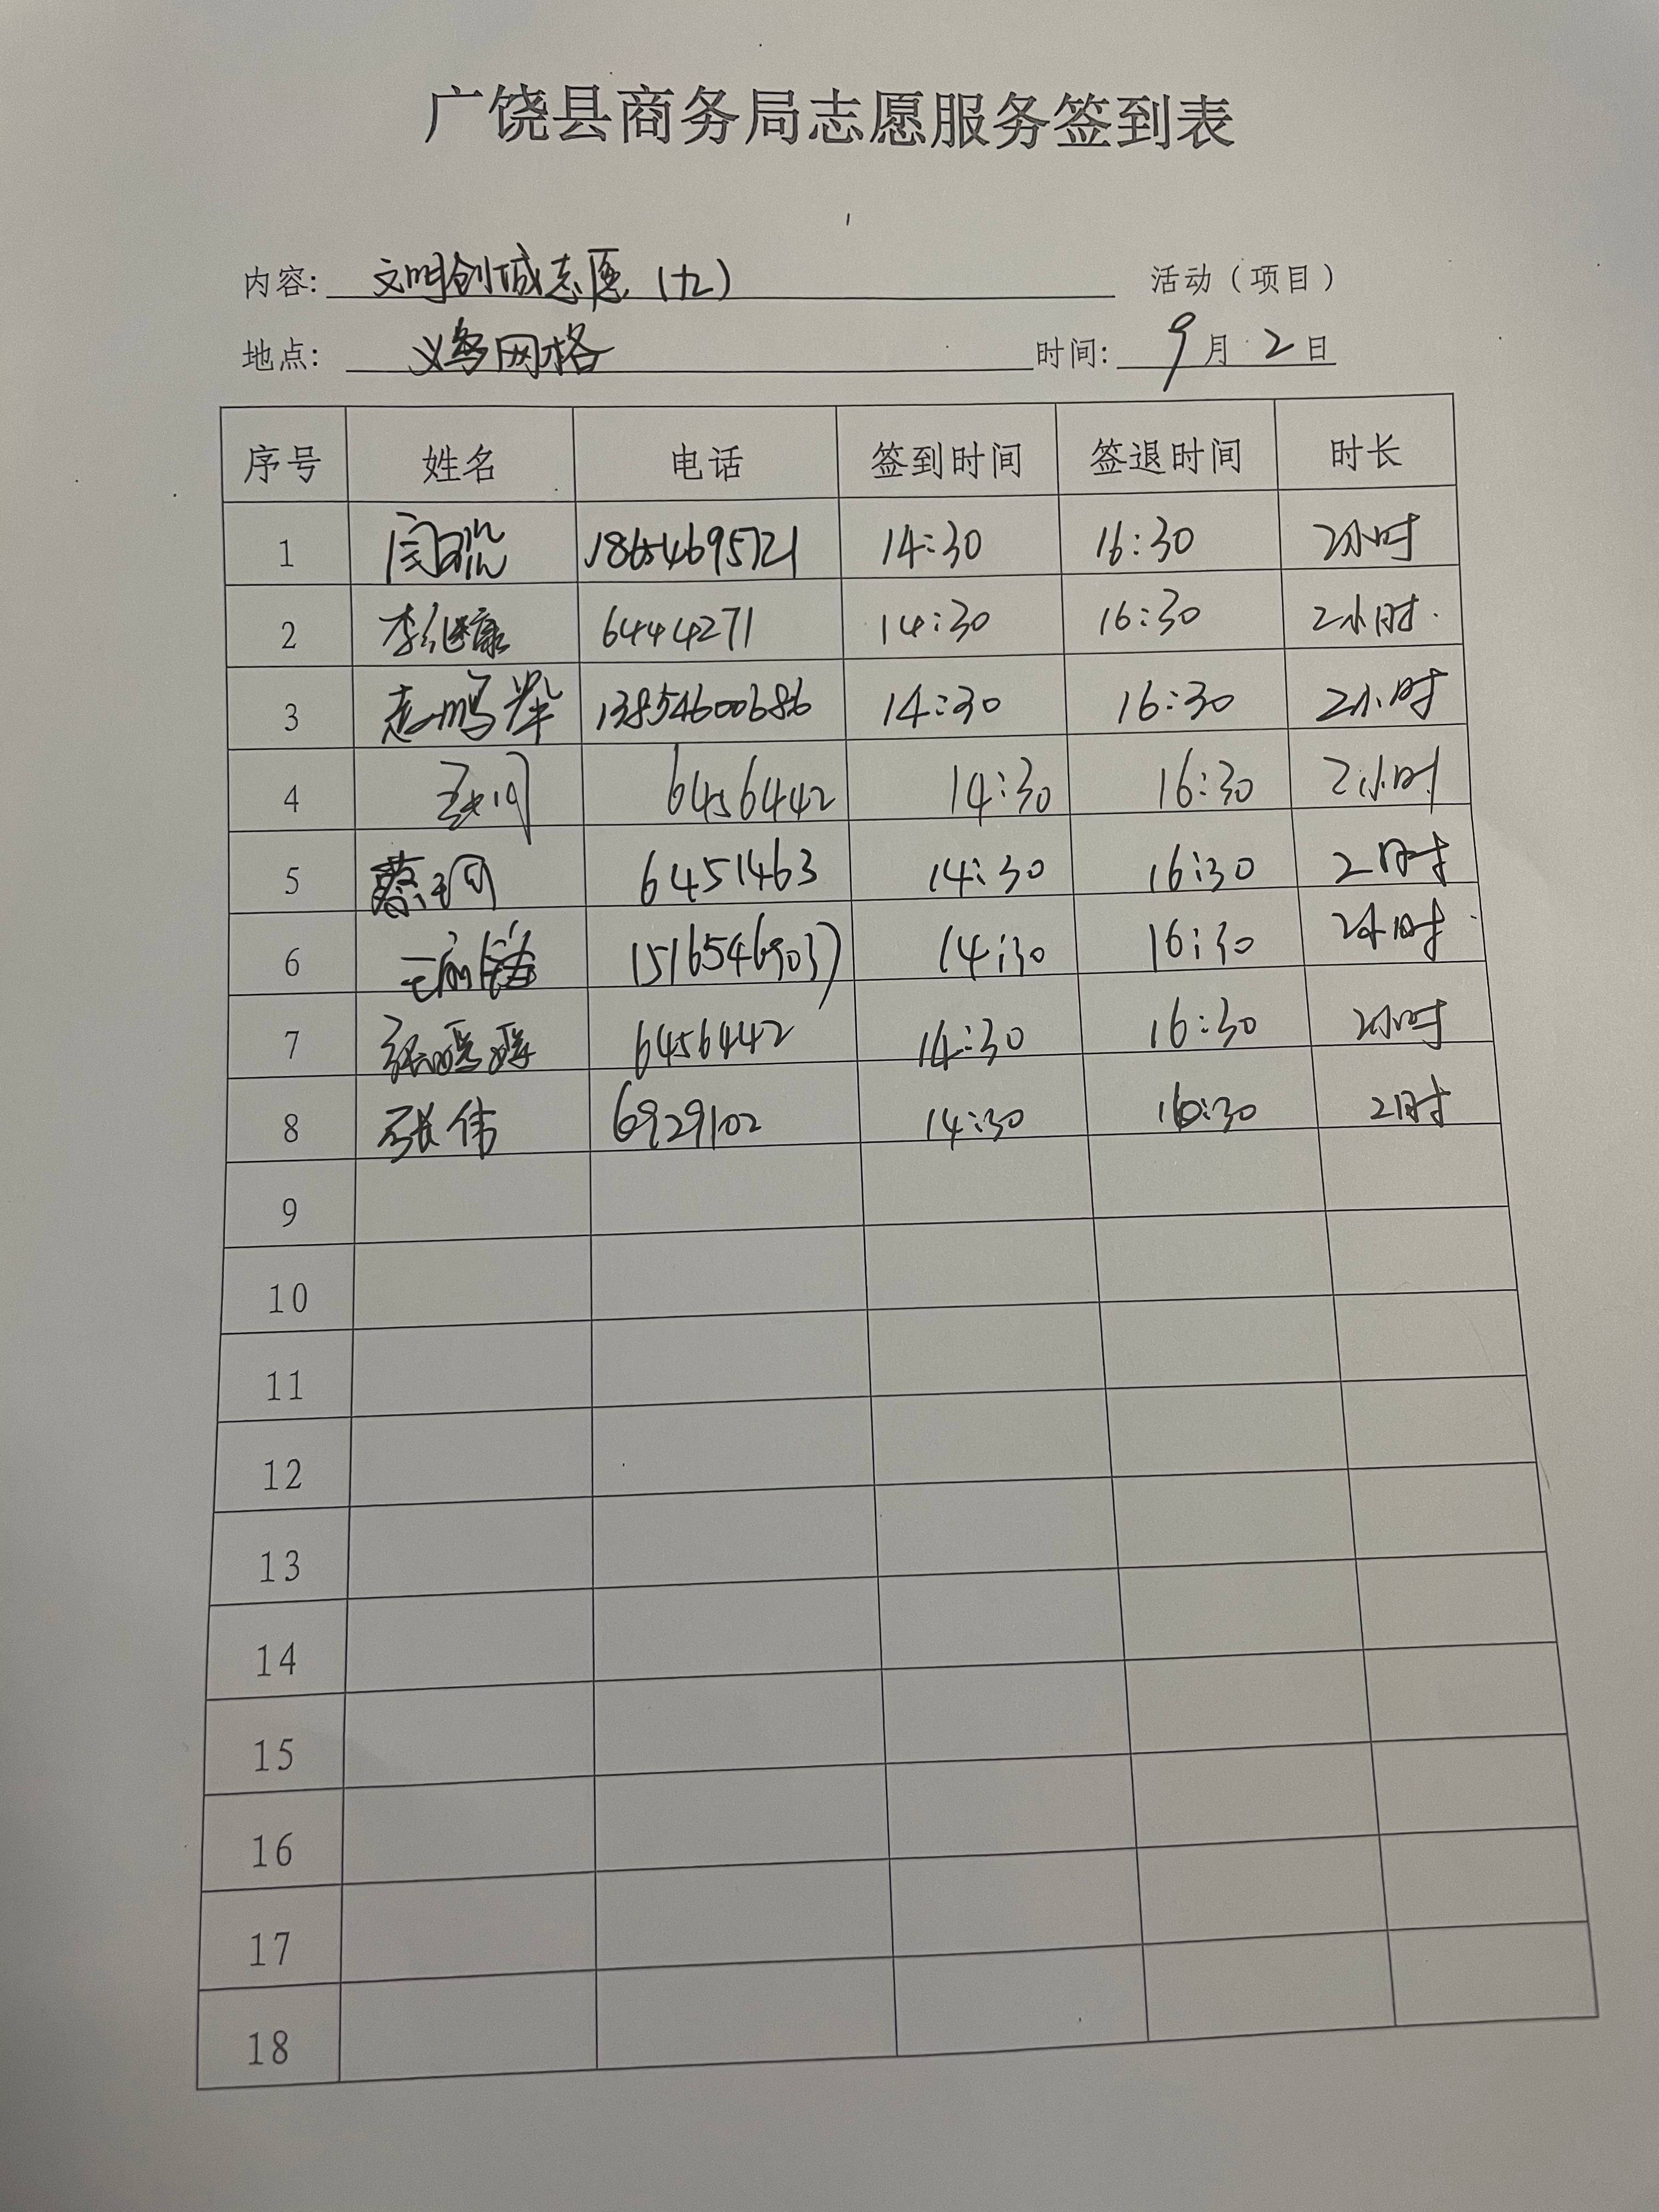 广饶县商务局志愿服务签到表
内容: 文明创城志愿（九） 活动（项目）
地点: 义乌网格 时间: 9月2日
序号 姓名 电话 签到时间 签退时间 时长
1 18654695721 14:30 16:30 2小时
2 李继康 6444271 14:30 16:30 2小时
3 13854600686 14:30 16:30 2小时
4 6456442 14:30 16:30 2小时
5 6451463 14:30 16:30 2时
6 15165469037 14:30 16:30 2小时
7 6456442 14:30 16:30 2小时
8 张伟 6929102 14:30 16:30 2时
9
10
11
12
13
14
15
16
17
18